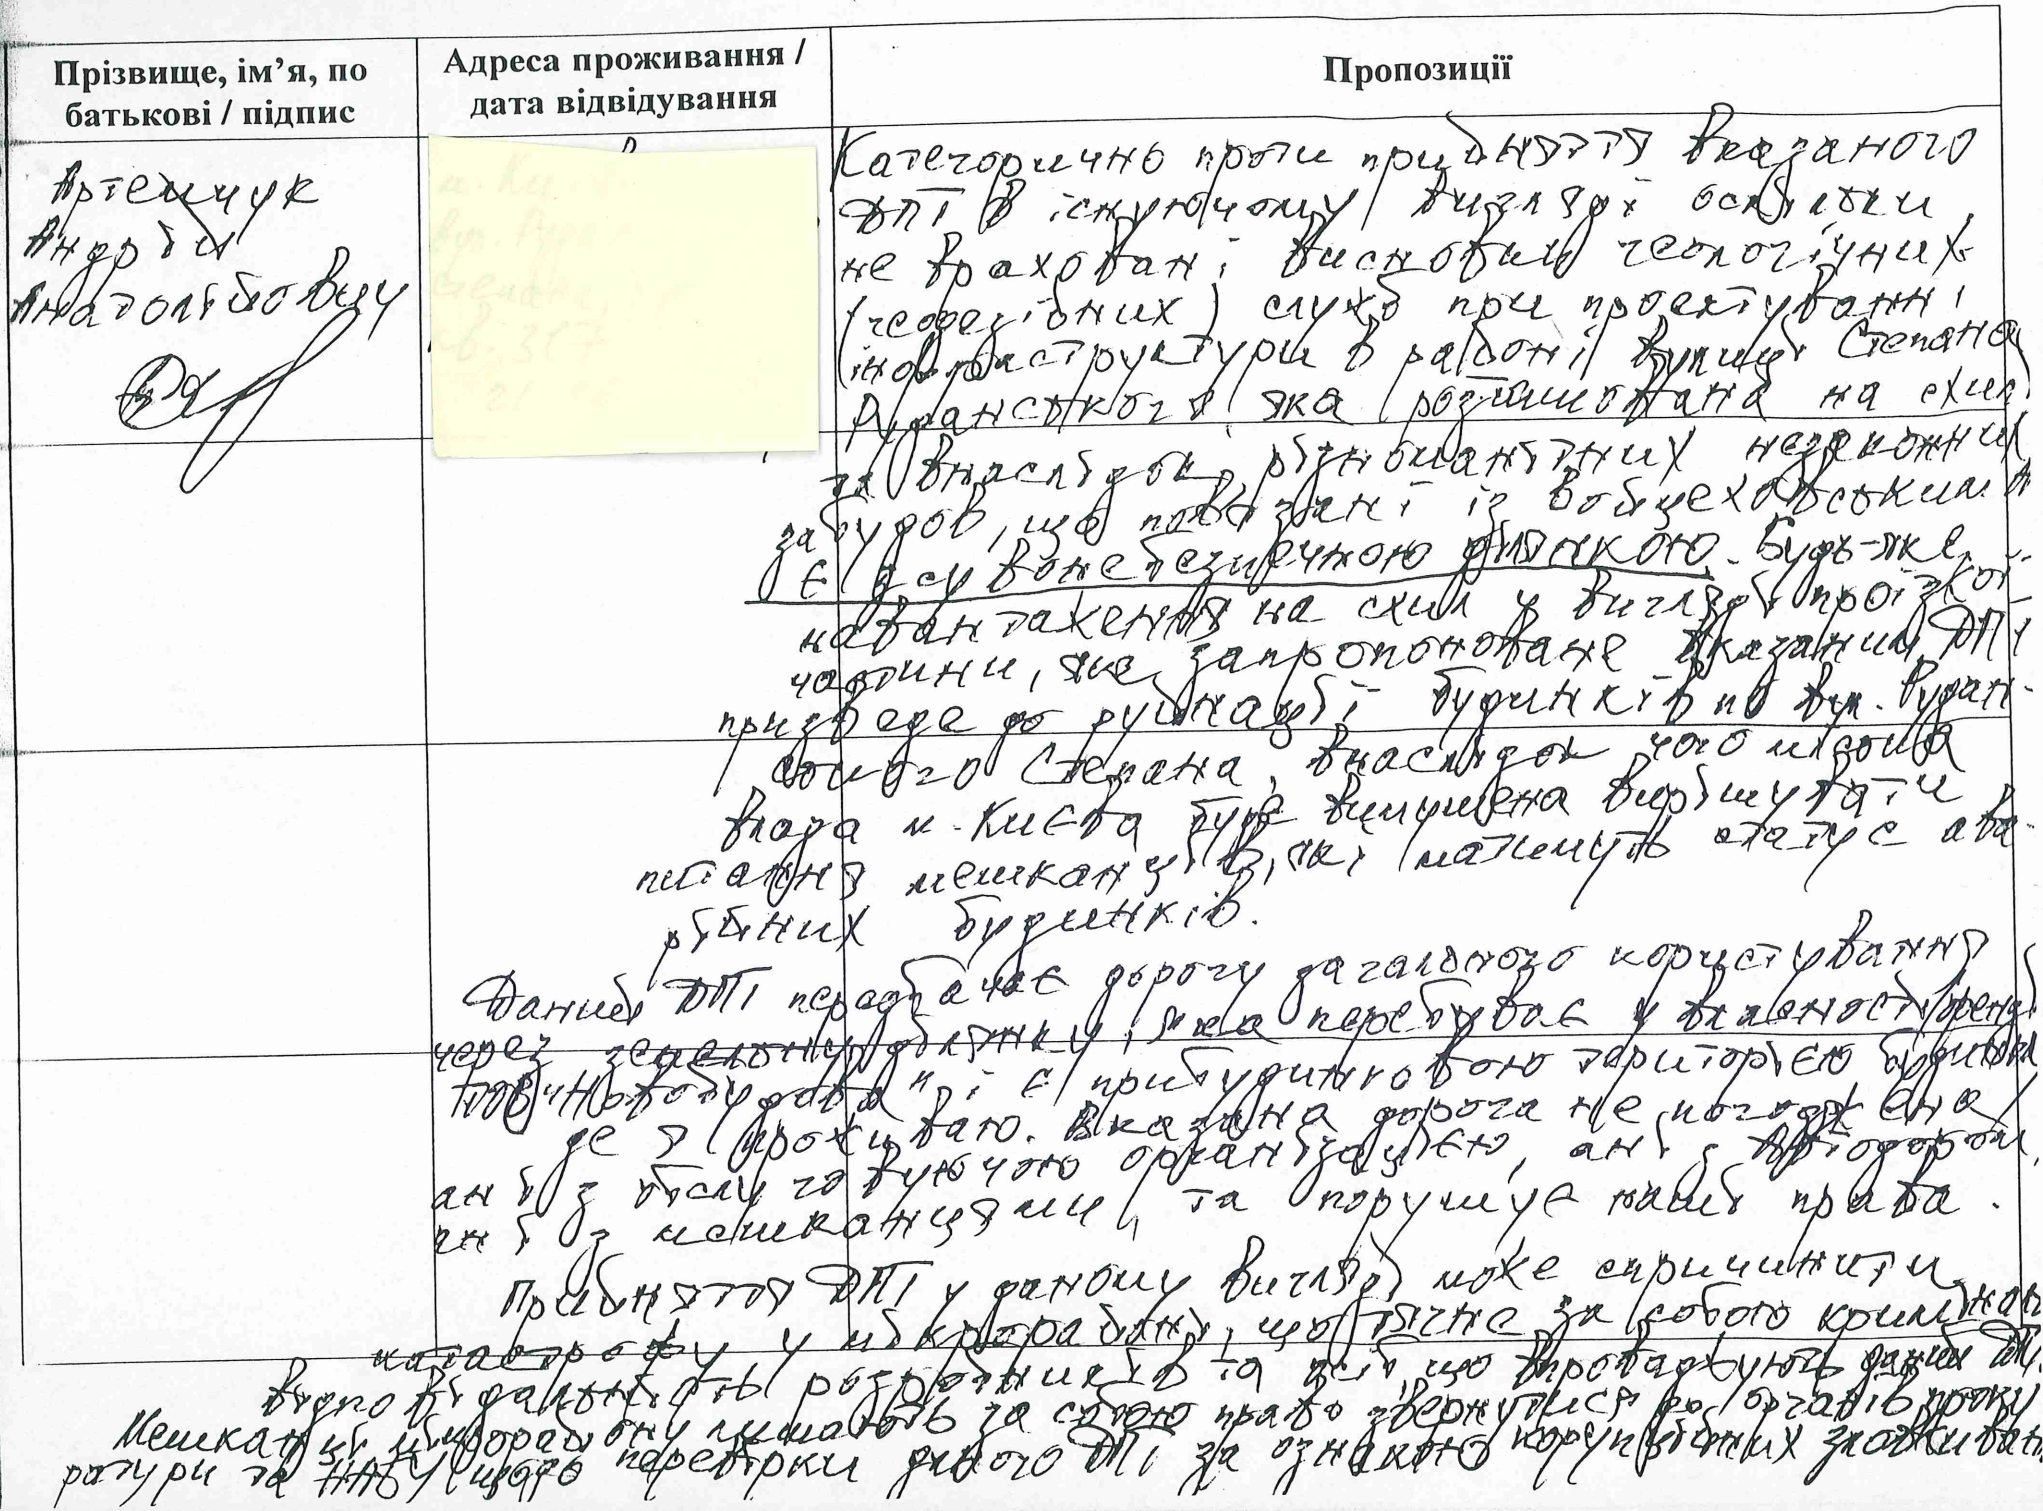 Прізвище, ім’я, по
батькові / підпис
Адреса проживання /
дата відвідування
Пропозиції
Артемчук
Андрій
Анатолійович
Категорично проти прийняття вказаного
ДПТ в існуючому вигляді оскільки
не враховані висновки геологічних
(геодезійних) служб при проектуванні
інфраструктури в районі вулиці Степана
Руданського, яка розташована на схилі
та внаслідок різноманітних незаконних
забудов, що повязані із Войцеховським
є зсувонебезпечною ділянкою. Будь-яке
навантаження на схил у вигляді проїзкої
частини, яке запропоноване вказаним ДПТ
призведе до руйнації будинків по вул. Рудан-
ського Степана, внаслідок чого міська
влада м. Києва буде вимушена вирішувати
питання мешканців, які матимуть статус ава-
рійних будинків.
Даний ДПТ передбачає дорогу загального користування
через земельну ділянку, яка перебуває у власності/оренді
і є прибудинковою територією будинку
де я проживаю. Вказана дорога не погоджена
ані з обслуговуючою організацією, ані з Автодором,
ані з мешканцями, та порушує наші права.
Прийняття ДПТ у даному вигляді може спричинити
катастрофу у мікрорайоні, що тягне за собою кримінал
відповідальність розробників та осіб, що впроваджують даний ДПТ.
Мешканці мікрорайону лишають за собою право звернутися до органів проку
ратури та НАБУ щодо перевірки даного ДПТ за ознакою корупційних зловживань